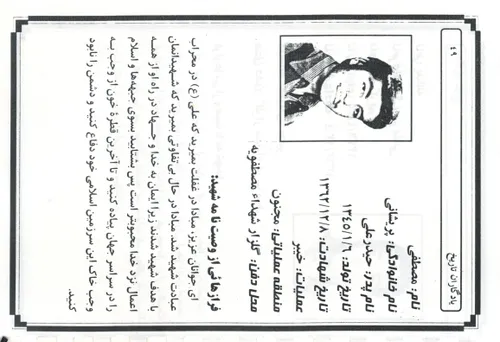 یادگاران تاریخ
۴۹
نام: مصطفی
نام خانوادگی: پرنشانی
نام پدر: حیدرعلی
تاریخ تولد: ۱۳۴۵/۱/۶
تاریخ شهادت: ۱۳۶۲/۱۲/۸
عملیات: خیبر
منطقه عملیاتی: مجنون
محل دفن: گلزار شهداء مصطفویه
فرازهائی از وصیت نامه شهید:
ای جوانان عزیز، مبادا در غفلت بمیرید که علی (ع) در محراب
عبادت شهید شد. مبادا در حال بی‌تفاوتی بمیرید که شهیدانمان
با هدف شهید شدند زیرا ایمان به خدا و جهاد در راه او از همه
اعمال نزد خدا محبوبتر است پس بشتابید بسوی جبهه‌ها و اسلام
را در سراسر جهان پیاده کنید و تا آخرین قطرهٔ خون از وجب به
وجب خاک این سرزمین اسلامی خود دفاع کنید و دشمن را نابود
کنید.